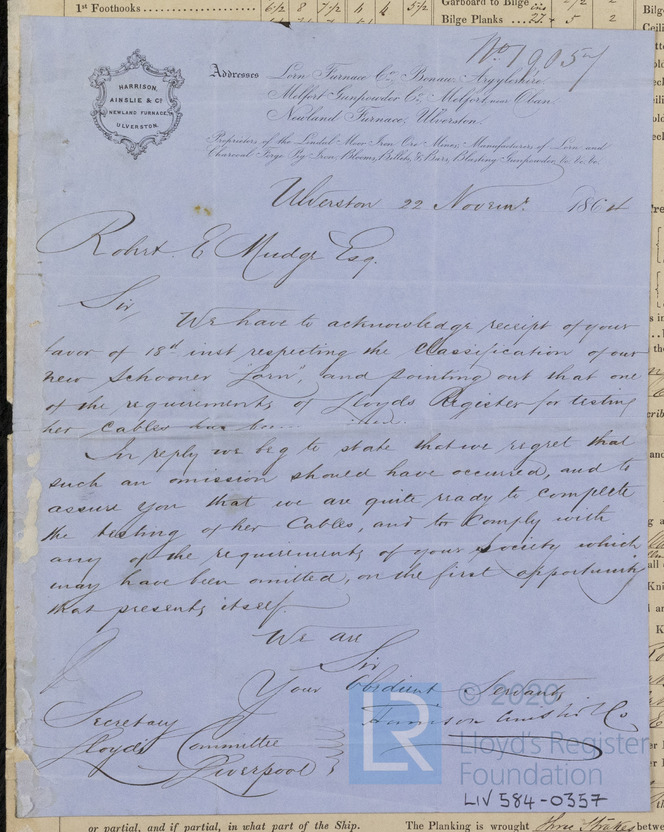 1st Foothooks
6½ 8 7½ 4 4 5½
Garboard to Bilge
Bilge Planks
No 19057
HARRISON,
AINSLIE & Co
NEWLAND FURNACE,
ULVERSTON.
Addresses Lorn Furnace Co., Bonaw, Argyleshire.
Melfort Gunpowder Co., Melfort, near Oban.
Newland Furnace, Ulverston.
Proprietors of the Lindal Moor Iron Ore Mines, Manufacturers of Lorn and
Charcoal Forge Pig Iron, Blooms, Billets, & Bars, Blasting Gunpowder, &c. &c. &c.
Ulverston 22 Novemr. 1864
Robert E Mudge Esq.
Sir,
We have to acknowledge receipt of your
favor of 18th inst respecting the Classification of our
new Schooner "Lorn", and pointing out that one
of the requirements of Lloyds Register for testing
her Cables has been
In reply we beg to state that we regret that
such an omission should have occurred, and to
assure you that we are quite ready to complete
the testing of her Cables, and to Comply with
any of the requirements of your Society which
may have been omitted, on the first opportunity
that presents itself.
We are
Sir
Your Obedient Servants
Harrison Ainslie & Co
Secretary
Lloyds Committee
Liverpool
© 2020
LR
Lloyd's Register
Foundation
LIV 584-0357
or partial, and if partial, in what part of the Ship.
The Planking is wrought Three Strakes between